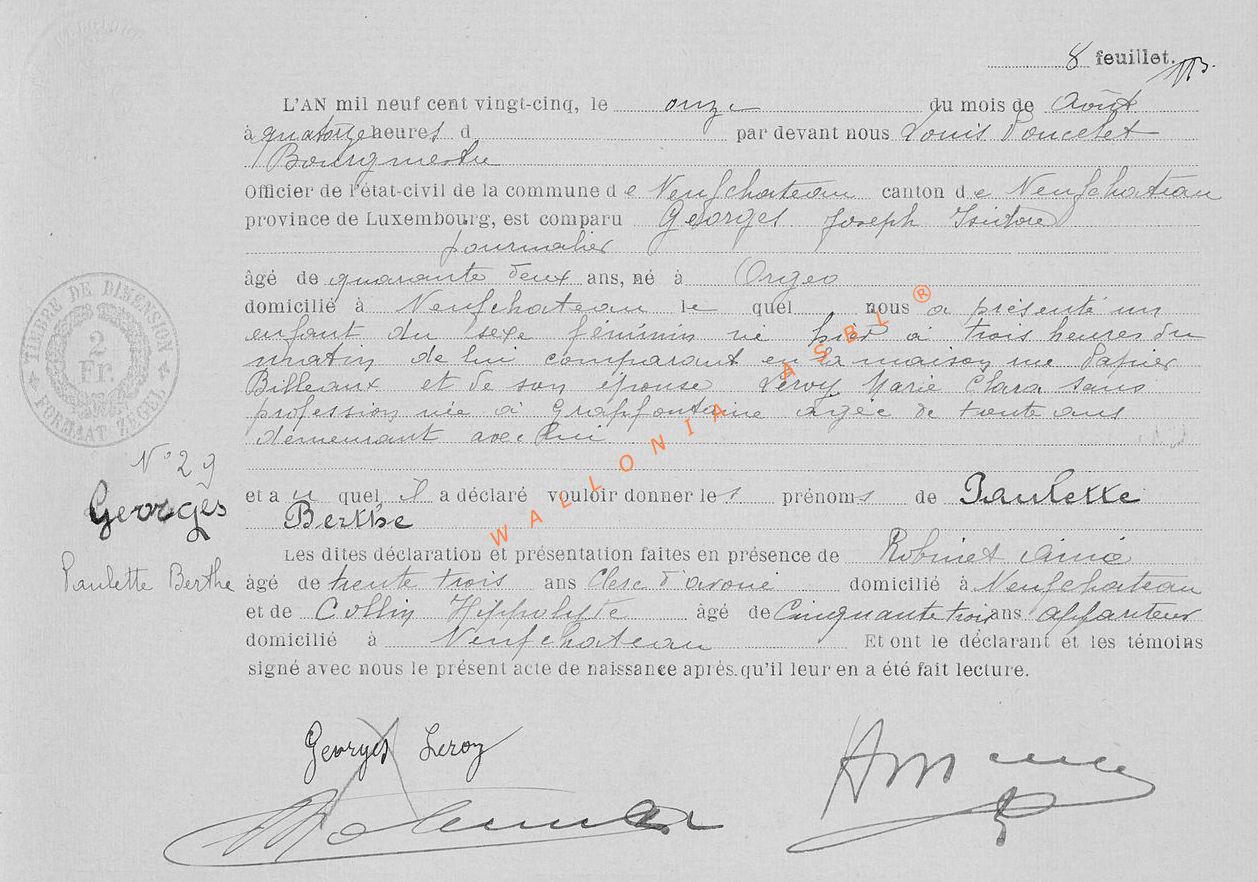 8 feuillet.
L'AN mil neuf cent vingt-cinq, le onze du mois de Août
à quatorze heures d par devant nous Louis Poncelet
Bourgmestre
Officier de l'état-civil de la commune de Neufchateau canton de Neufchateau
province de Luxembourg, est comparu Georges Joseph Isidore
journalier
âgé de quarante deux ans, né à Orgeo
domicilié à Neufchateau le quel nous a présenté un
enfant du sexe féminin né hier à trois heures du
matin de lui comparant en sa maison rue Papier
Billeaux et de son épouse Leroy Marie Clara sans
profession née à Grapfontaine agée de trente ans
demeurant avec lui
TIMBRE DE DIMENSION
2
Fr.
FORMAAT ZEGEL
WALLONIA ASBL ®
N° 29
Georges
Paulette Berthe
et a u quel il a déclaré vouloir donner les prénoms de Paulette
Berthe
Les dites déclaration et présentation faites en présence de Robinet Aimé
âgé de trente trois ans Clerc d'avoué domicilié à Neufchateau
et de Collin Hippolyte âgé de Cinquante trois ans appariteur
domicilié à Neufchateau Et ont le déclarant et les témoins
signé avec nous le présent acte de naissance après qu'il leur en a été fait lecture.
Georges Leroy